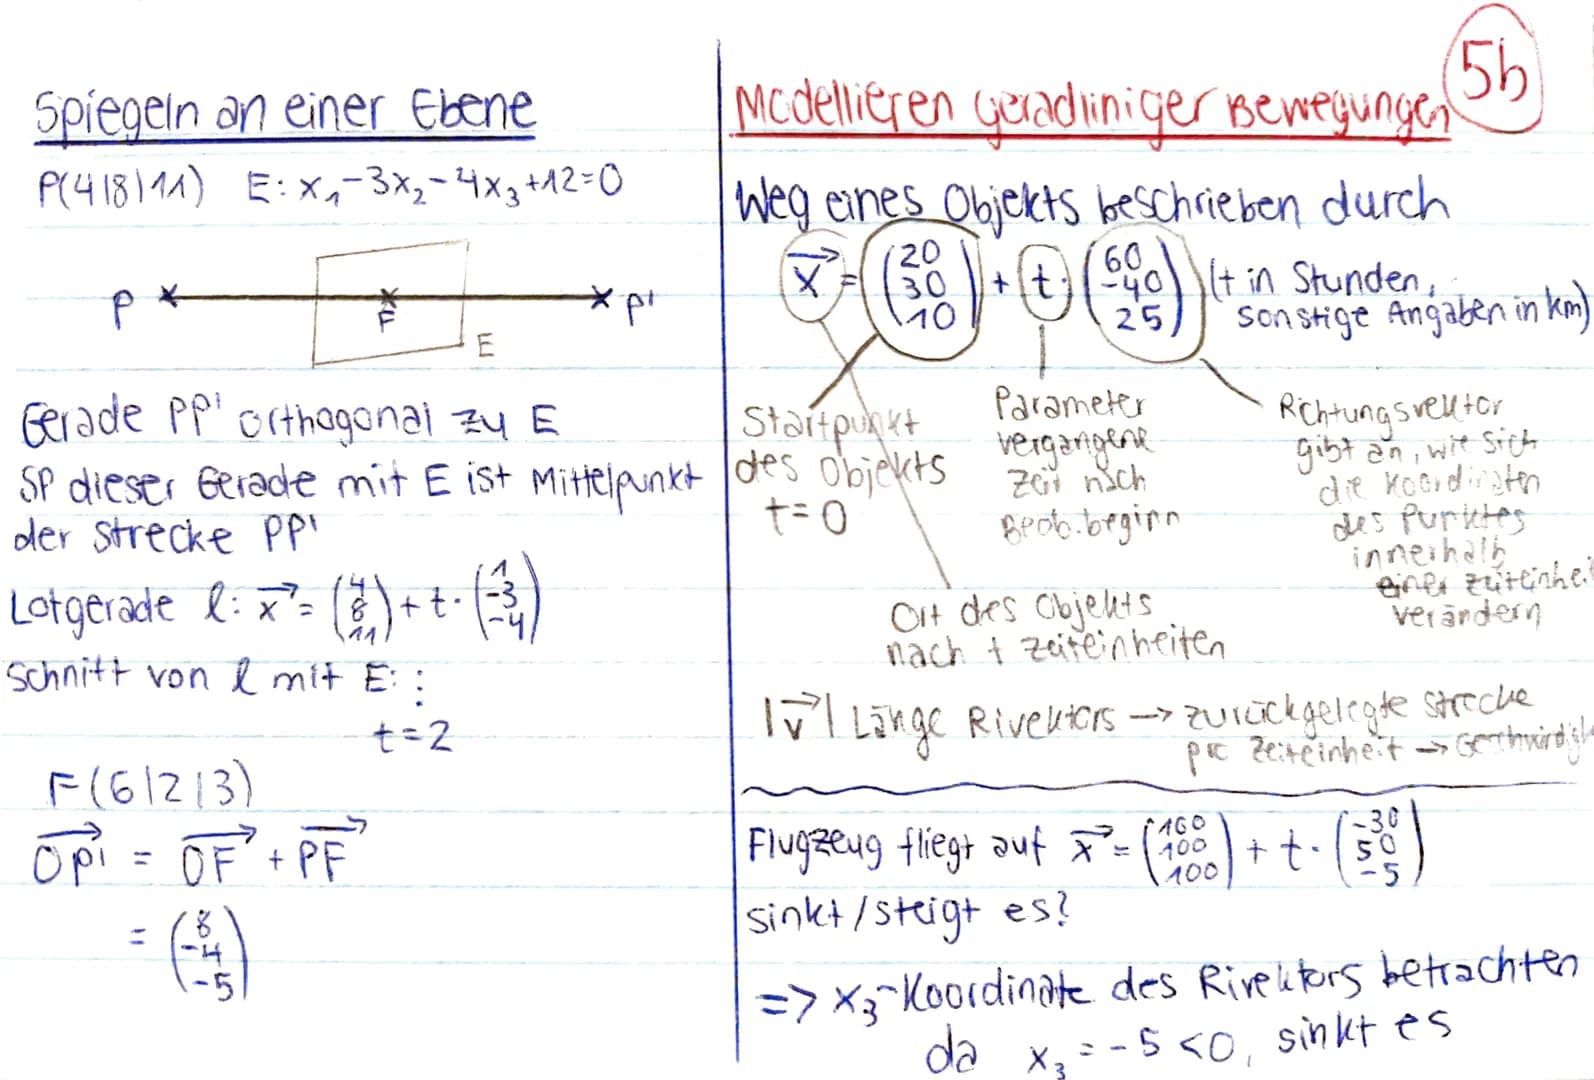 Spiegeln an einer Ebene
P(4|8|11) E: x₁-3x₂-4x₃+12=0
P F P'
E
Gerade PP' orthogonal zu E
SP dieser Gerade mit E ist Mittelpunkt
der Strecke PP'
Lotgerade l: x⃗ = (4 8 11) + t · (1 -3 -4)
Schnitt von l mit E: ⋮
t=2
F(6|2|3)
OP'⃗ = OF⃗ + PF⃗
= (8 -4 -5)
5b
Modellieren geradliniger Bewegungen
Weg eines Objekts beschrieben durch
x⃗ = (20 30 10) + t · (60 -40 25) (t in Stunden,
sonstige Angaben in km)
Startpunkt
des Objekts
t=0
Parameter
vergangene
Zeit nach
Beob.beginn
Richtungsvektor
gibt an, wie sich
die Koordinaten
des Punktes
innerhalb
einer Zeiteinhei
verändern
Ort des Objekts
nach t Zeiteinheiten
|v⃗| Länge Rivektors → zurückgelegte Strecke
pro Zeiteinheit →
Flugzeug fliegt auf x⃗ = (100 100 100) + t · (-30 50 -5)
sinkt/steigt es?
=> x₃-Koordinate des Rivektors betrachten
da x₃ = -5 <0, sinkt es